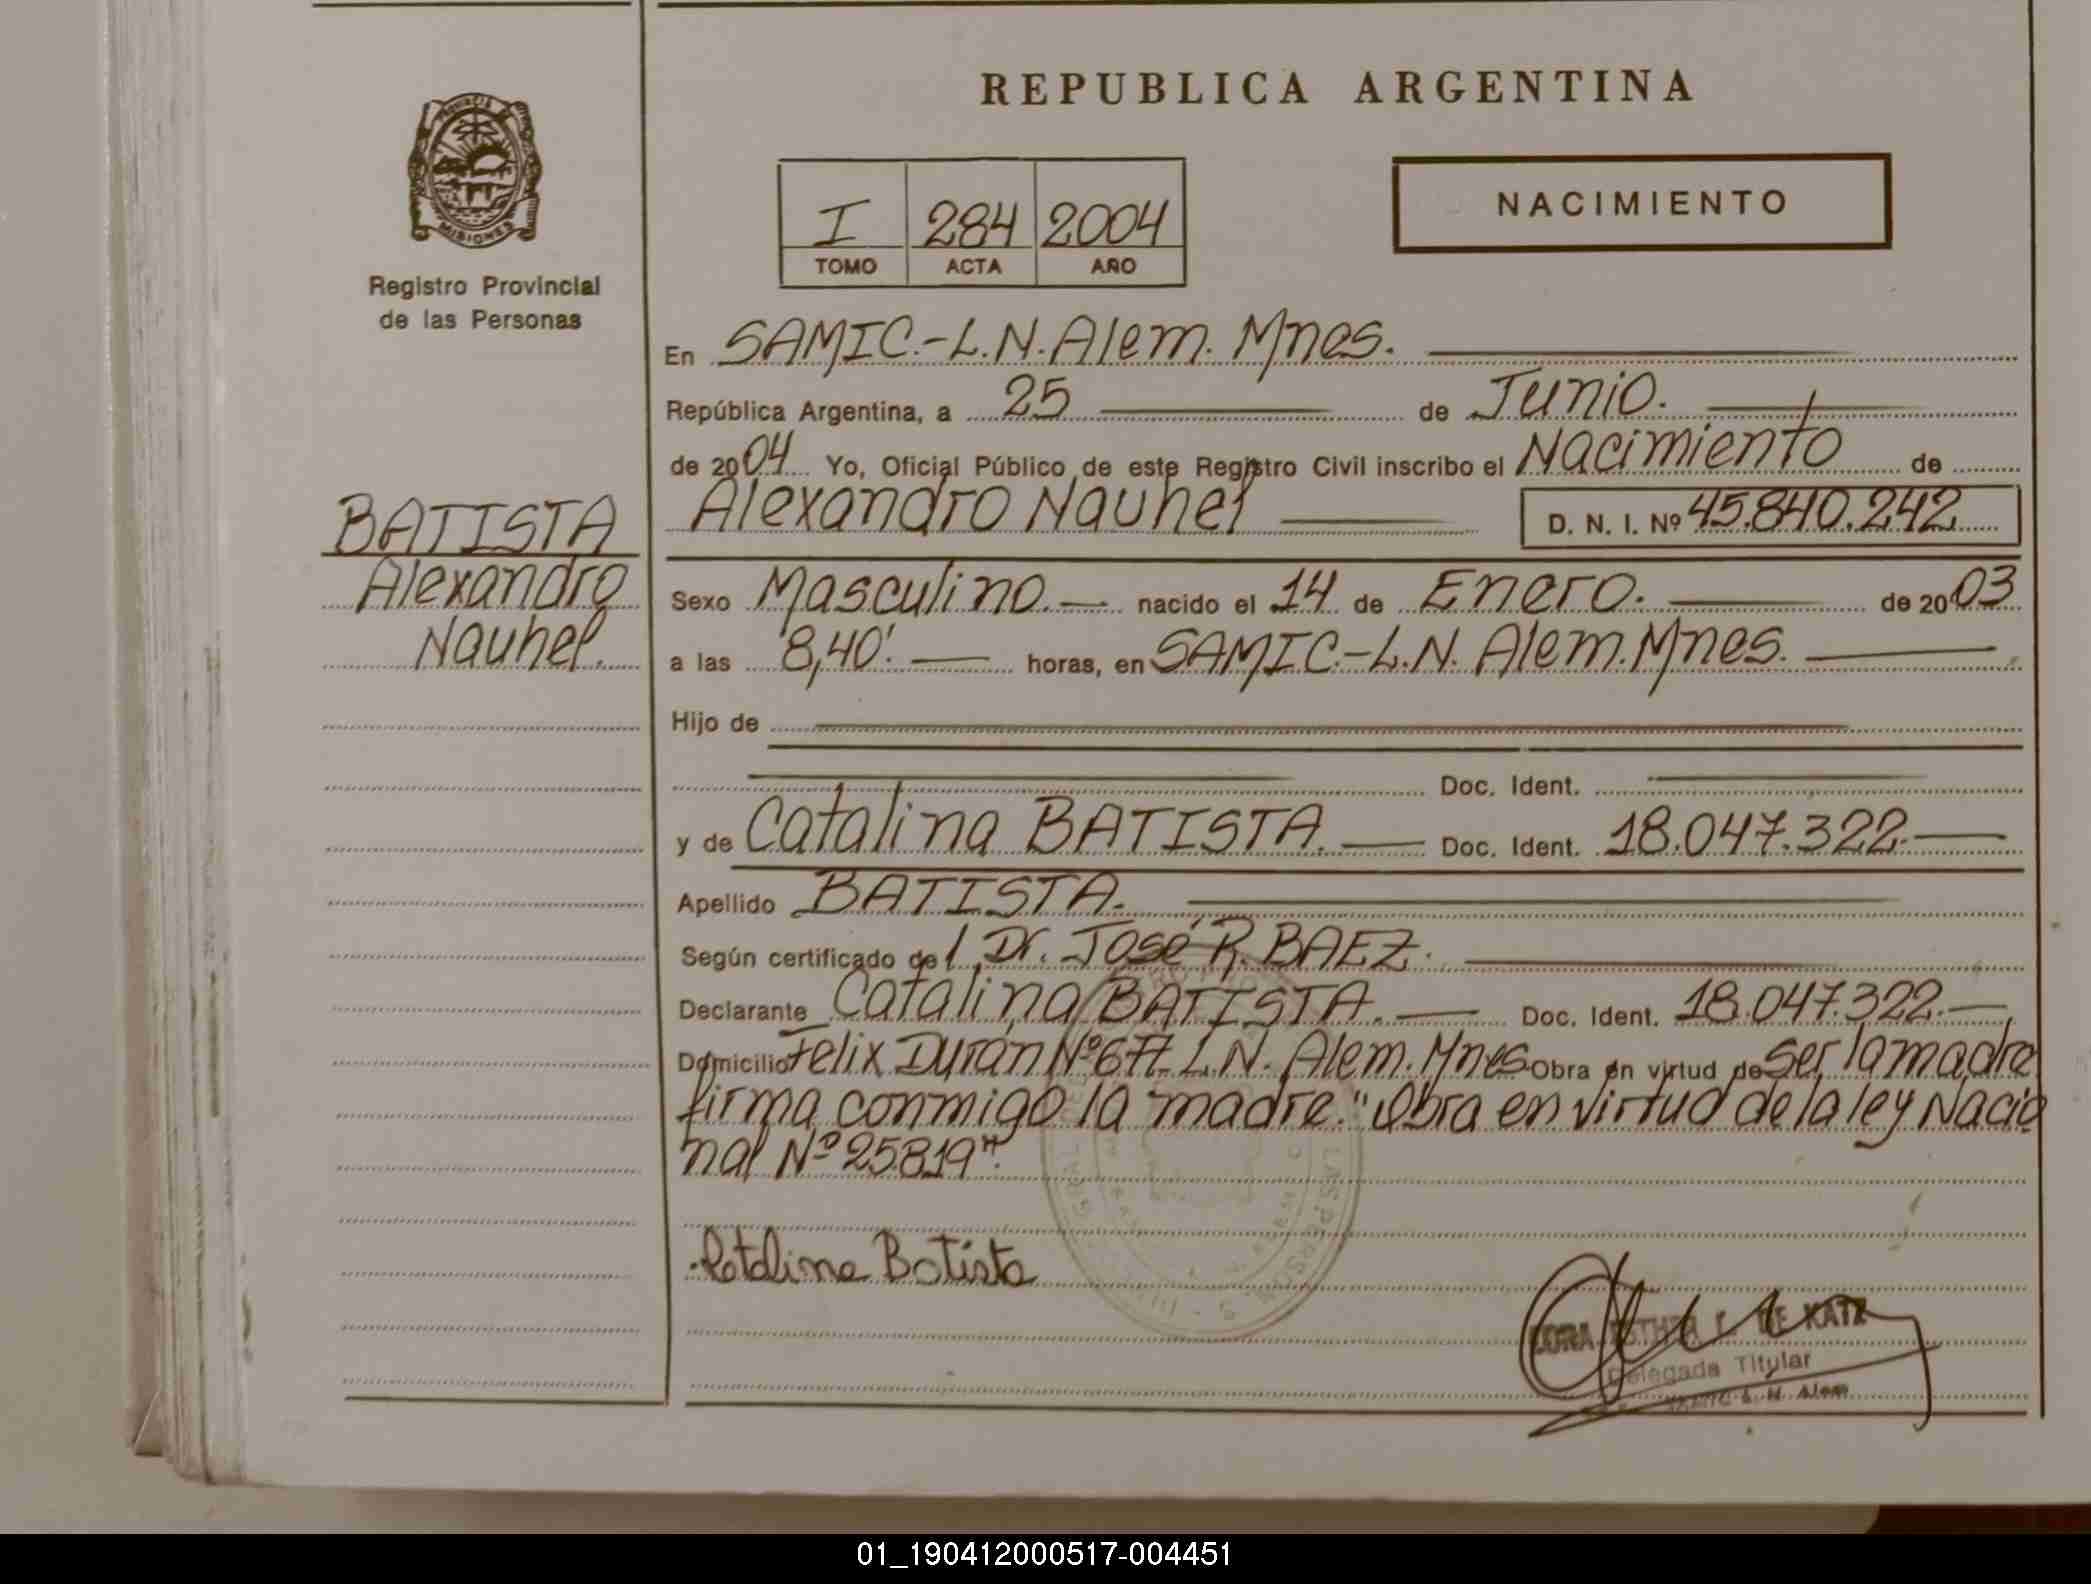 REPUBLICA ARGENTINA
PROVINCIA
MISIONES
Registro Provincial
de las Personas
I 284 2004
TOMO ACTA AÑO
NACIMIENTO
En SAMIC.-L.N.Alem. Mnes.
República Argentina, a 25 de Junio.
de 2004 Yo, Oficial Público de este Registro Civil inscribo el Nacimiento de
Alexandro Nauhel D. N. I. Nº 45.840.242
BATISTA
Alexandro
Nauhel.
Sexo Masculino. nacido el 14 de Enero. de 2003
a las 8,40'. horas, en SAMIC.-L.N. Alem. Mnes.
Hijo de
Doc. Ident.
y de Catalina BATISTA. Doc. Ident. 18.047.322.
Apellido BATISTA.
Según certificado del Dr. José R. BAEZ.
Declarante Catalina BATISTA. Doc. Ident. 18.047.322.
Domicilio Felix Durán Nº 677. L.N. Alem. Mnes Obra en virtud de Ser la madre
firma conmigo la madre. "Obra en virtud de la ley Nacio
nal Nº 25819".
Catalina Batista
ESTHER DE KATZ
Delegada Titular
SAMIC L. N. Alem
01_190412000517-004451